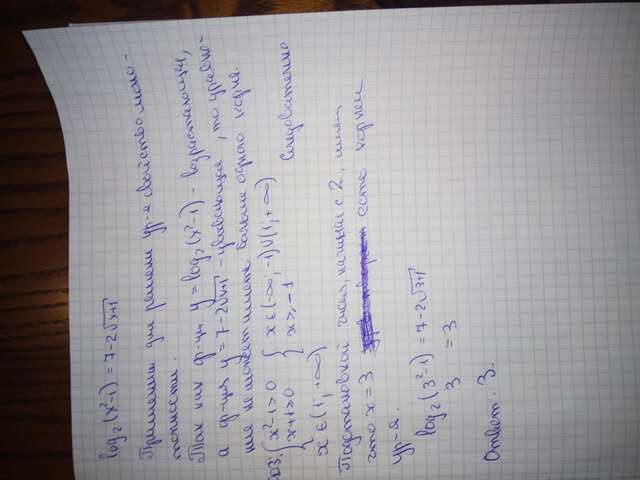 log₂(x²-1) = 7-2√x+1
Применим для решения ур-я свойство моно-
тонности.
Так как ф-ция y = log₂(x²-1) - возрастающая,
а ф-ция y = 7-2√x+1 - убывающая, то уравне-
ние не может иметь больше одного корня.
ОДЗ: { x²-1>0 { x∈(-∞,-1)∪(1,+∞) Следовательно
{ x+1≥0 { x≥-1
x∈(1,+∞)
Подстановкой чисел, начиная с 2,
что x=3 есть корнем
ур-я.
log₂(3²-1) = 7-2√3+1
3 = 3
Ответ: 3.